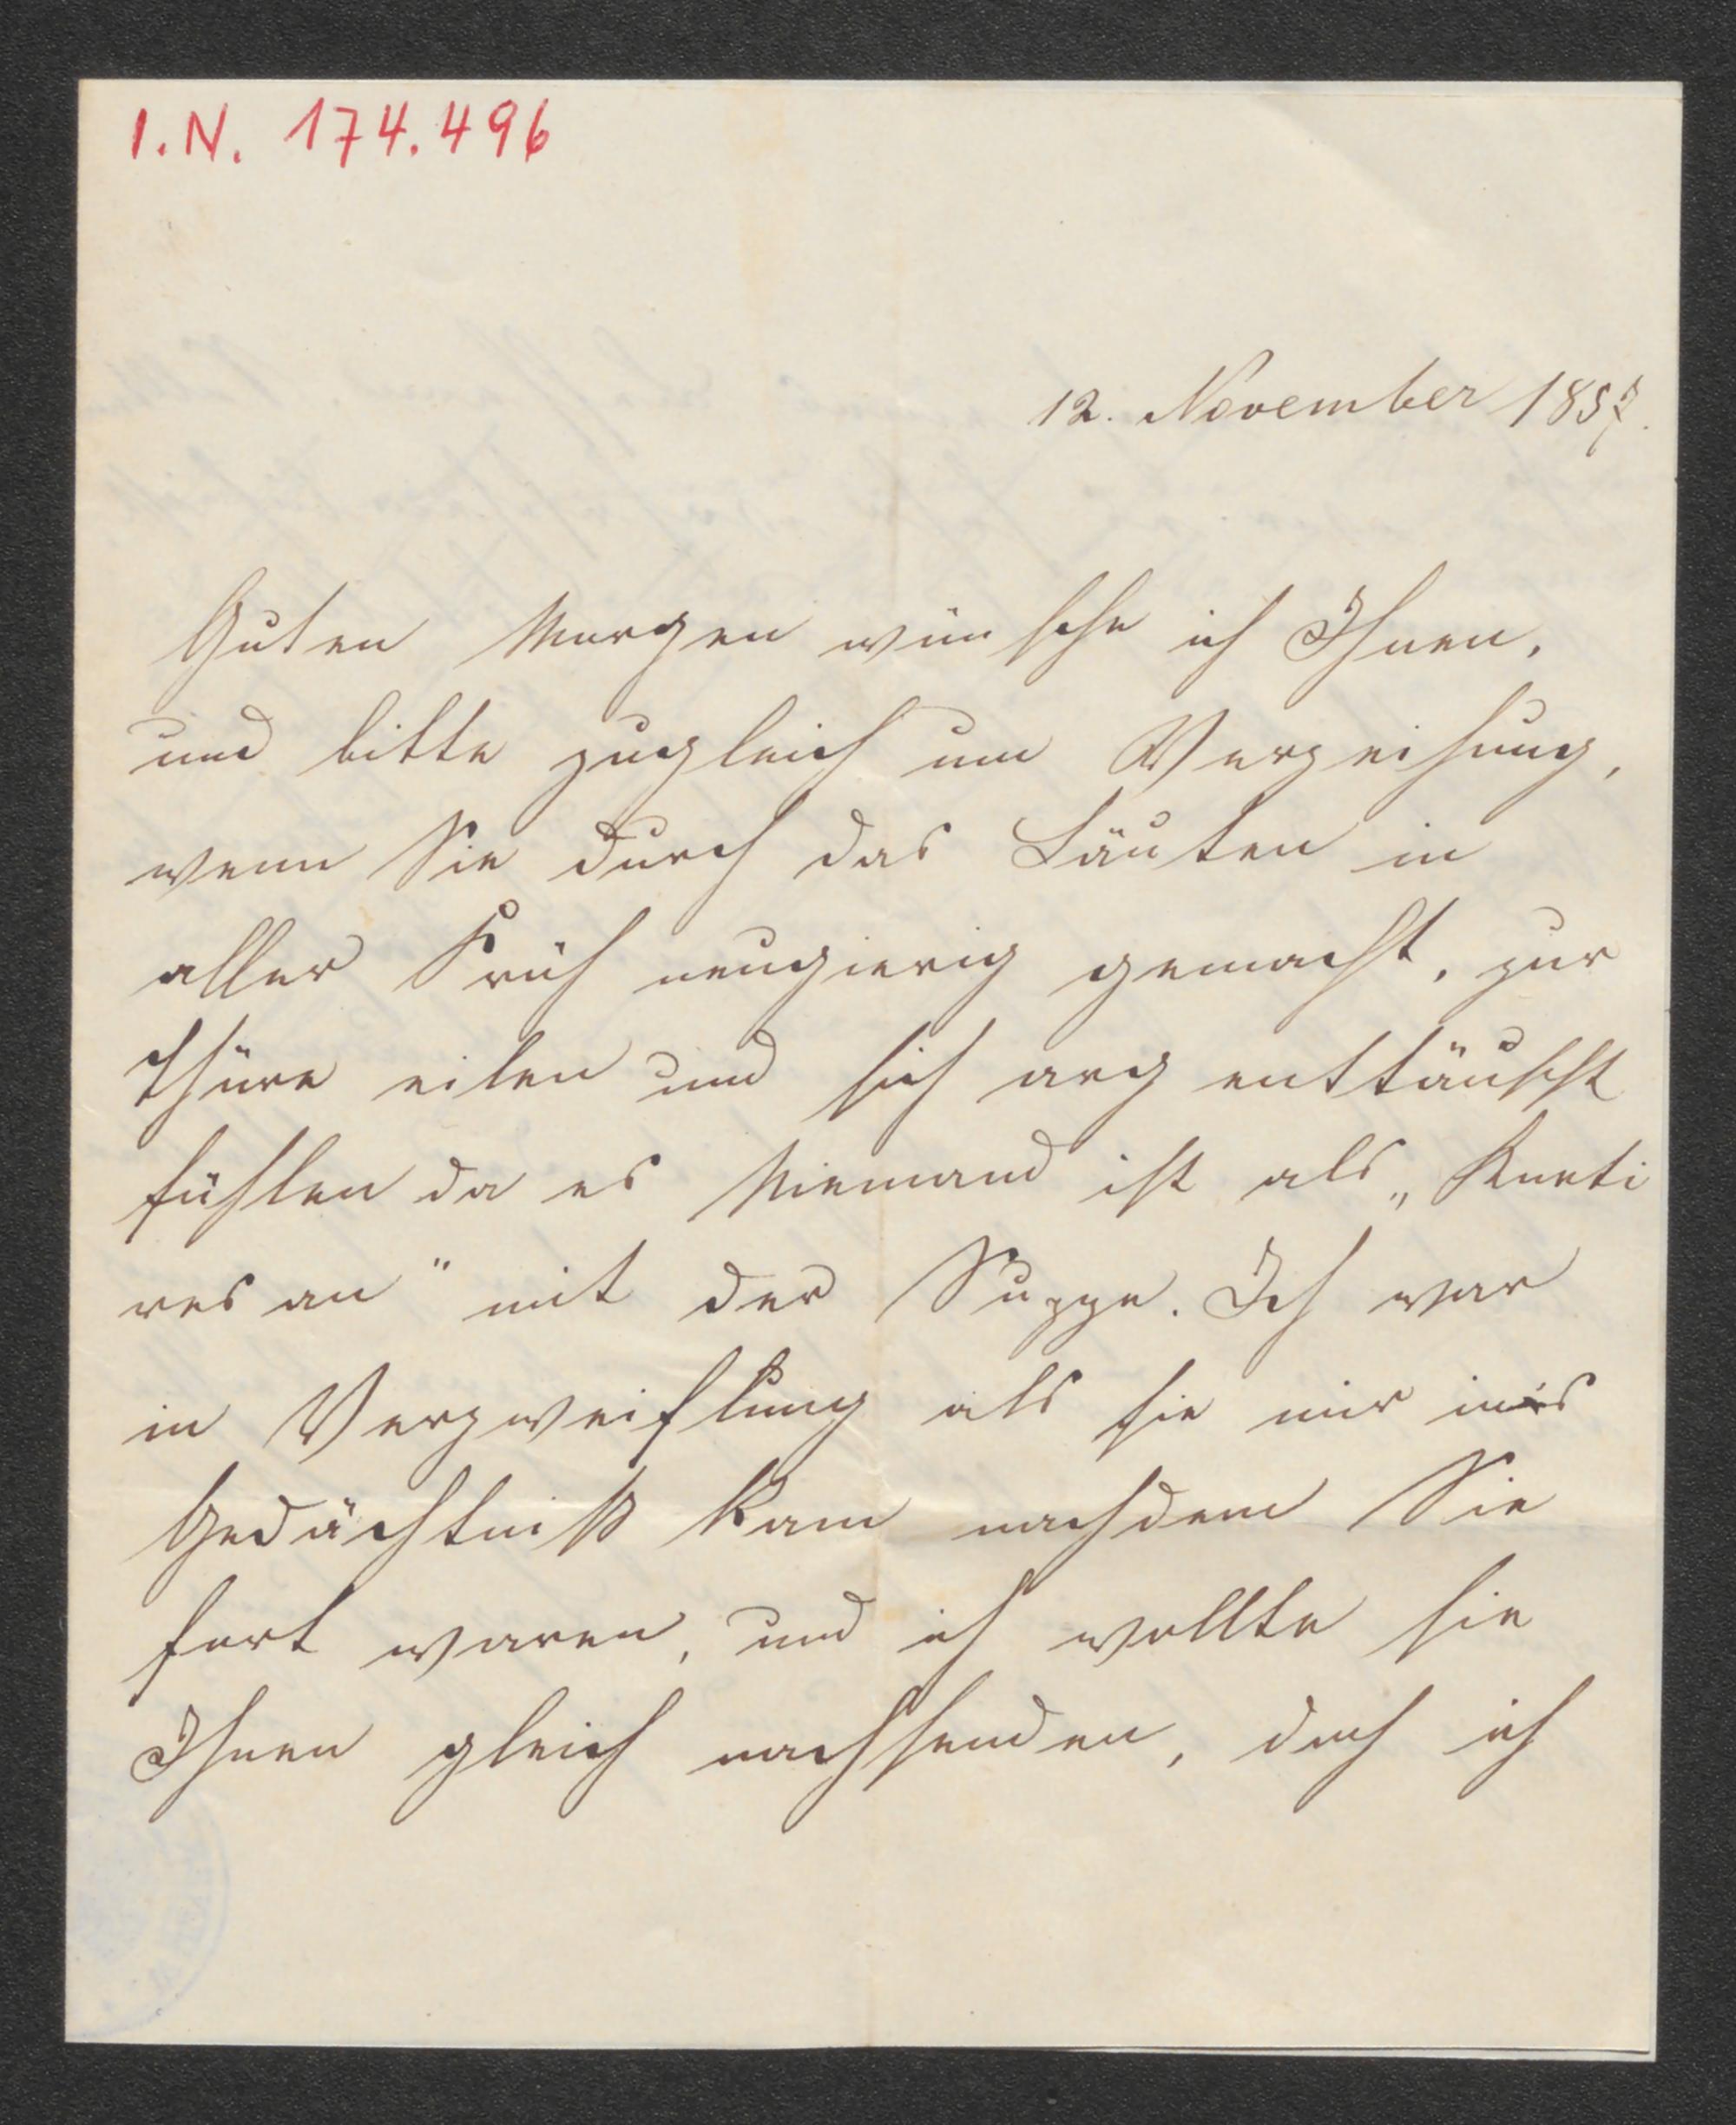 I.N. 174.496
12. November 1857.
Guten Morgen wünsche ich Ihnen,
und bitte zugleich um Verzeihung,
wenn Sie durch das Läuten in
aller Früh neugierig gemacht, zur
Thüre eilen und sich arg enttäuscht
fühlen da es Niemand ist als „
res an" mit der Suppe. Ich war
in Verzweiflung als sie mir ins
Gedächtniß kam nachdem Sie
fort waren, und ich wollte sie
Ihnen gleich nachsenden, doch ich